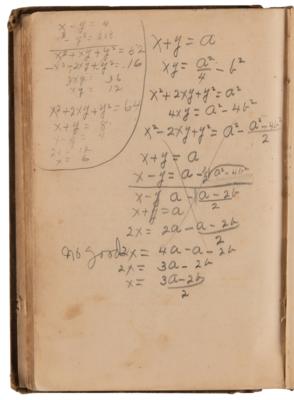 x - y = 4
x² + xy + y² = 52
x² - 2xy + y² = 16
3xy = 36
xy = 12
x² + 2xy + y² = 64
x + y = 8
x = 6
x + y = a
xy = a²/4 - b²
x² + 2xy + y² = a²
4xy = a² - 4b²
x² - 2xy + y² = a² - a² - 4b²/2
x + y = a
x - y = a - √a² - 4b²/2
x - y a - a - 2b/2
x + y = a
2x = 2a - a - 2b/2
no good 2x = 4a - a - 2b
2x = 3a - 2b
x = 3a - 2b/2